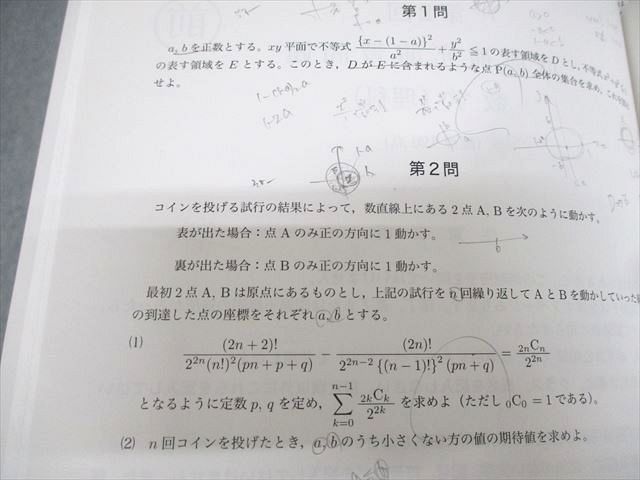 第1問
a, b を正数とする。xy 平面で不等式 {x-(1-a)}²/a² + y²/b² ≦ 1 の表す領域を D とし, 不等式
の表す領域を E とする。このとき, D が E に含まれるような点 P(a, b) 全体の集合を求め,
せよ。
第2問
コインを投げる試行の結果によって, 数直線上にある2点 A, B を次のように動かす。
表が出た場合:点 A のみ正の方向に1動かす。
裏が出た場合:点 B のみ正の方向に1動かす。
最初2点 A, B は原点にあるものとし, 上記の試行を n 回繰り返して A と B を動かしていった
の到達した点の座標をそれぞれ a, b とする。
(1) (2n+2)!/(2²ⁿ(n!)²(pn+p+q)) - (2n)!/(2²ⁿ⁻²{(n-1)!}²(pn+q)) = ₂ₙCₙ/2²ⁿ
となるように定数 p, q を定め, Σ[k=0, n-1] ₂ₖCₖ/2²ᵏ を求めよ(ただし ₀C₀ = 1 である)。
(2) n 回コインを投げたとき, a, b のうち小さくない方の値の期待値を求めよ。